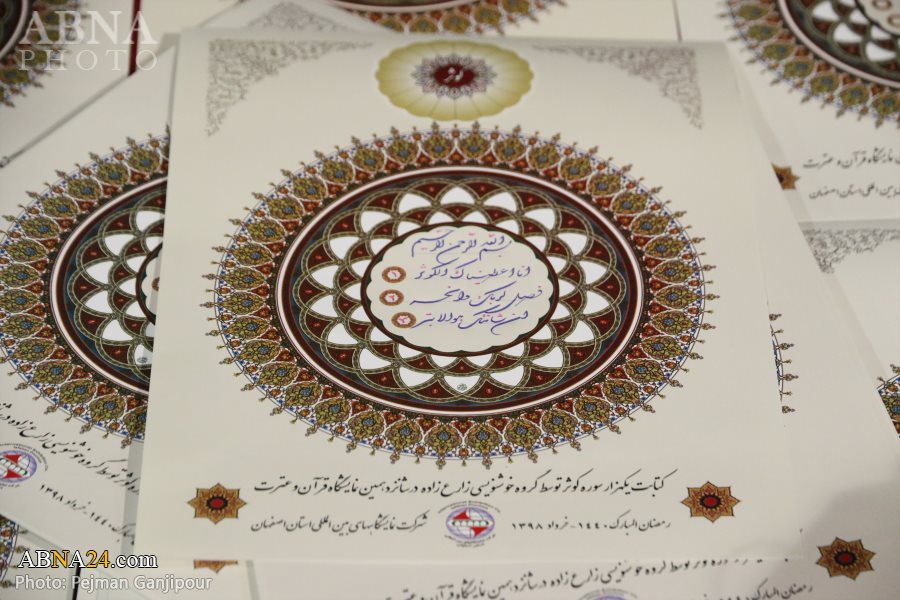 ABNA
PHOTO
کوثر
بسم الله الرحمن الرحیم
انا اعطیناک الکوثر
فصل لربک وانحر
ان شانئک هو الابتر
کتابت یکهزار سوره کوثر توسط گروه خوشنویسی زارع زاده در شانزدهمین نمایشگاه قرآن و عترت
رمضان المبارک ۱۴۴۰ - خرداد ۱۳۹۸
شرکت نمایشگاههای بین المللی استان اصفهان
نمایشگاه قرآن و عترت
بین المللی استان اصفهان
ABNA24.com
Photo: Pejman Ganjipour